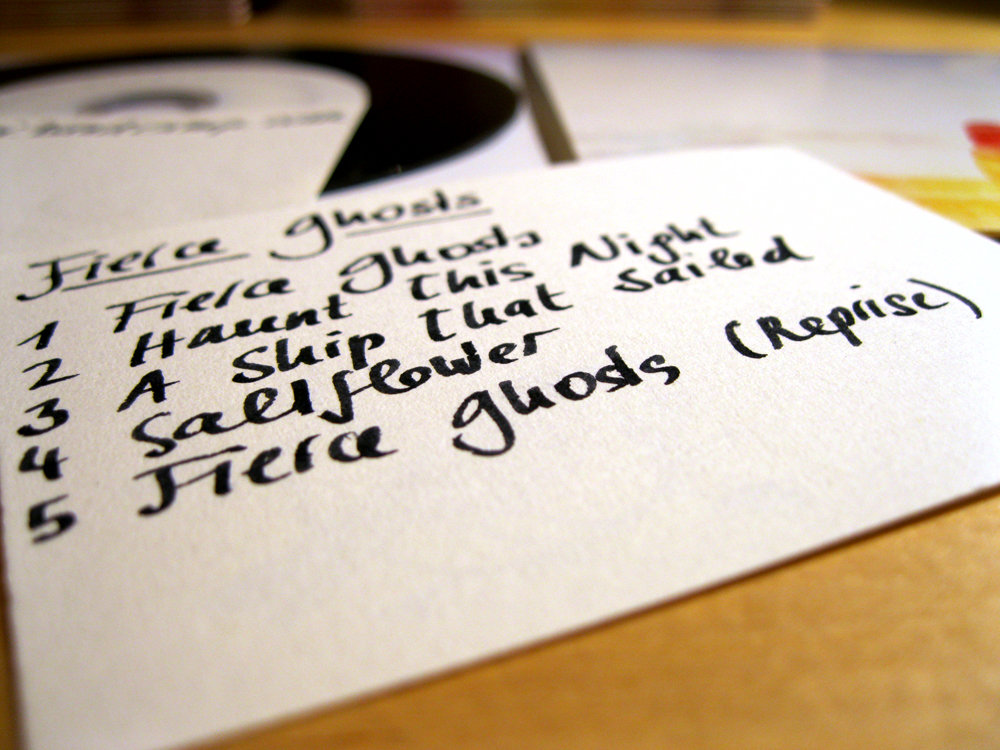 Fierce Ghosts
1 Fierce Ghosts
2 Haunt This Night
3 A Ship that Sailed
4 Saltflower
5 Fierce Ghosts (Reprise)